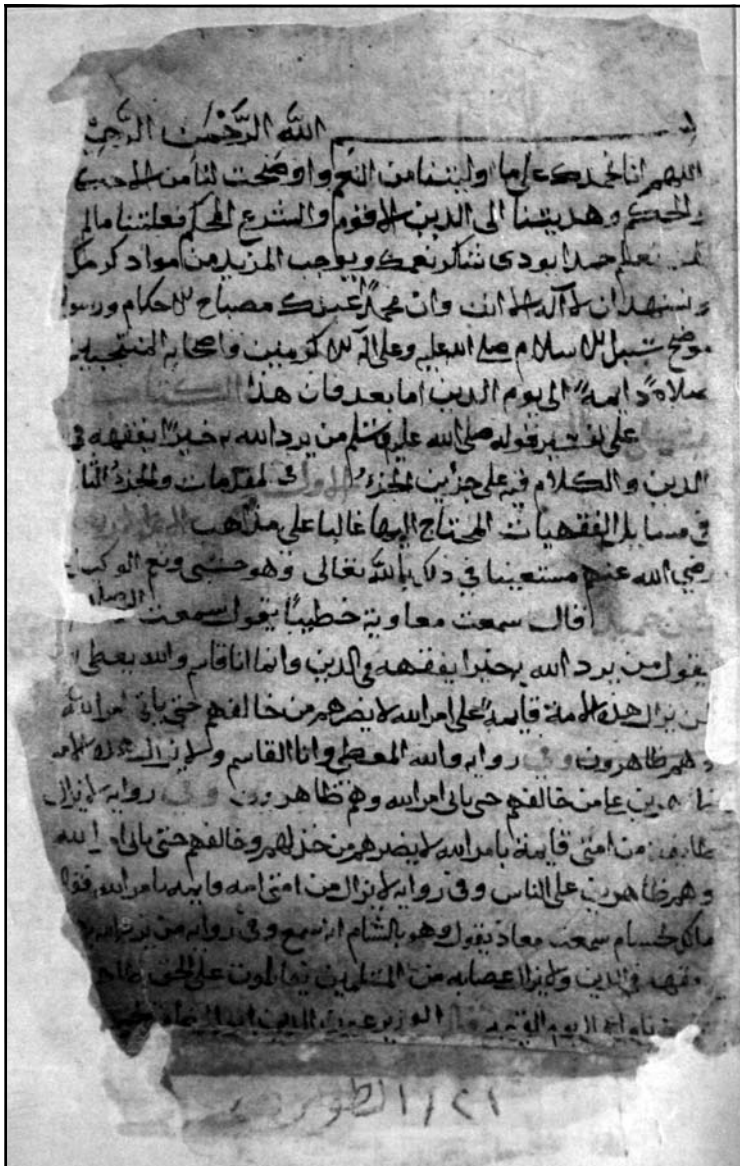 بسم الله الرحمن الرحيم
اللهم انا نحمدك على ما اوليتنا من النعم واوضحت لنا من الاحكام
والحكم وهديتنا الى الدين الاقوم والشرع المحكم فعلمتنا مالم
نعلم حمدا يودى شكر نعمك ويوجب المزيد من مواد كرمك
ونشهد ان لا اله الا انت وان محمدا عبدك مصباح الاحكام ورسولك
موضح سبل الاسلام صلى الله عليه وعلى اله الاكرمين واصحابه المنتجبين
صلاة دايمة الى يوم الدين اما بعد فان هذا الكتاب
على تفسير قوله صلى الله عليه وسلم من يرد الله به خيرا يفقهه في
الدين والكلام فيه على جزين الجزء الاول المقدمات والجزء الثاني
في مسايل الفقهيات المحتاج اليها غالبا على مذاهب
رضي الله عنهم مستعينا في ذلك بالله تعالى وهو حسبي ونعم الوكيل
قال سمعت معاوية خطيبا يقول سمعت
يقول من يرد الله به خيرا يفقهه في الدين وانما انا قاسم والله يعطي
لن يزال هذه الامة قايمة على امر الله لا يضرهم من خالفهم حتى ياتي امر الله
وهم ظاهرون وفي رواية والله المعطي وانا القاسم ولا يزال هذه الامة
ظاهرين على من خالفهم حتى ياتي امر الله وهم ظاهرون وفي رواية لا يزال
طايفة من امتي قايمة بامر الله لا يضرهم من خذلهم وخالفهم حتى ياتي امر الله
وهم ظاهرين على الناس وفي رواية لا يزال من امتي امة قايمة بامر الله فقال
مالك سمعت معاذ يقول وهو بالشام وفي رواية من يرد الله به
يفقهه في الدين ولا يزال عصابة من المسلمين يقاتلون على الحق
الى يوم القيمة قال الوزير
١/٢١